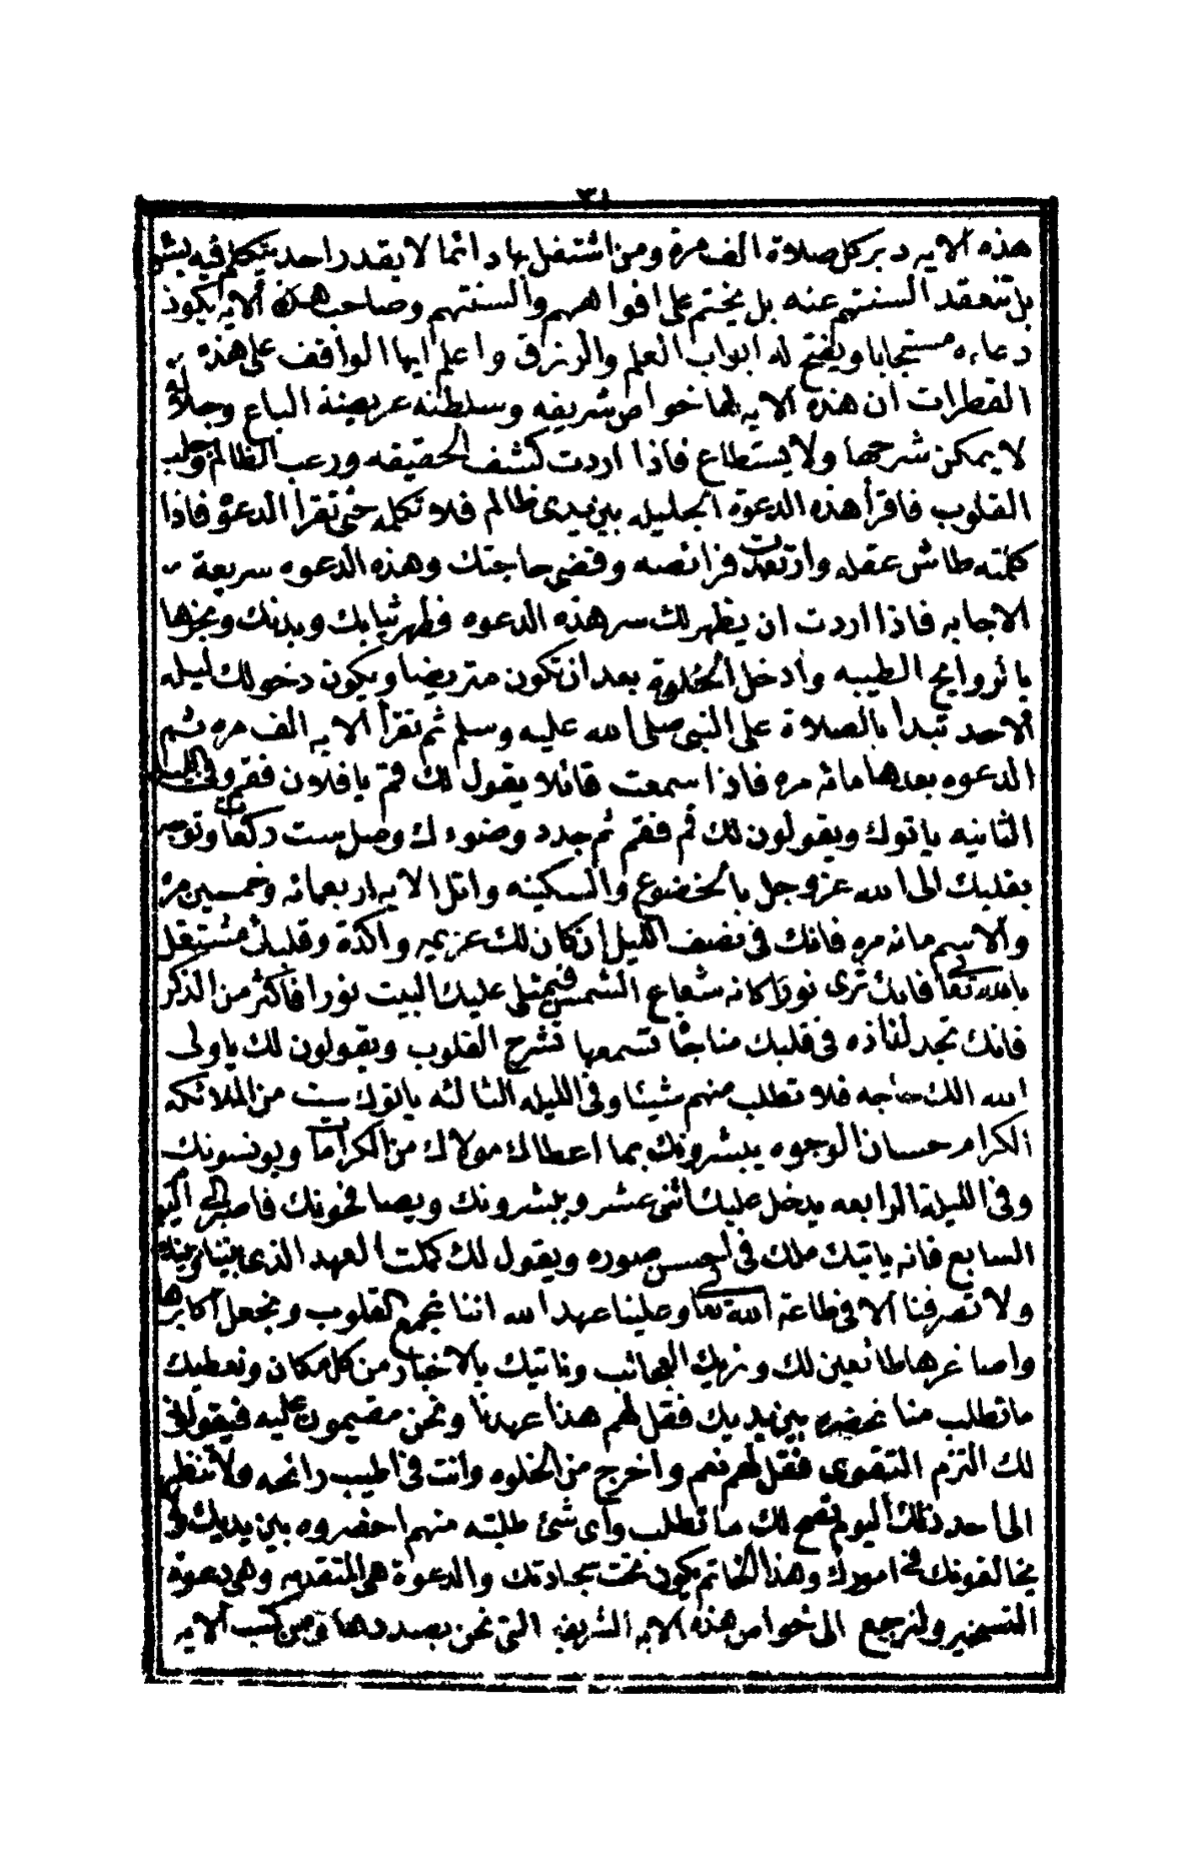 ٣١
هذه الايه دبر كل صلاة الف مرة ومن اشتغل بها دائما لا يقدر احد يتكلم فيه بشئ
بل تنعقد السنتهم عنه بل يختم على افواههم والسنتهم وصاحب هذه الايه يكون
دعاءه مستجابا ويفتح له ابواب العلم والرزق واعلم ايها الواقف على هذه
القطرات ان هذه الايه لها خواص شريفه وسلطنه عريضة الباع وجلالة
لا يمكن شرحها ولا يستطاع فاذا اردت كشف الحقيقه ورعب الظالم وجلب
القلوب فاقرأ هذه الدعوة الجليله بين يدى ظالم فلا تكلمه حتى تقرأ الدعوة فاذا
كلمته طاش عقله وارتعدت فرائصه وقضى حاجتك وهذه الدعوه سريعة
الاجابه فاذا اردت ان يظهر لك سر هذه الدعوه فطهر ثيابك وبدنك وبخرها
بالروايح الطيبه وادخل الخلوة بعد ان تكون متريضا ويكون دخولك ليله
الاحد تبدأ بالصلاة على النبى صلى الله عليه وسلم ثم تقرأ الايه الف مره ثم
الدعوه بعدها مائه مره فاذا سمعت قائلا يقول لك قم يا فلان فقم وفى الليله
الثانيه ياتوك ويقولون لك قم فقم ثم جدد وضوءك وصل ست ركعات وتوجه
بقلبك الى الله عز وجل بالخضوع والسكينه واتل الايه اربعمائه وخمسين مرة
والاسم مائه مره فانك فى نصف الليل ان كان لك عزيمه واكدة وقلبك مشتغل
بالله تعالى فانك ترى نورا كانه شعاع الشمس فيمتلى عليك البيت نورا فاكثر من الذكر
فانك تجد لذاذه فى قلبك مناجتا تسمعها تشرح القلوب ويقولون لك يا ولى
الله الك حاجه فلا تطلب منهم شيئا وفى الليله الثالثه ياتوك ست من الملائكه
الكرام حسان الوجوه يبشرونك بما اعطاك مولاك من الكرامات ويونسونك
وفى الليلة الرابعه يدخل عليك اثنى عشر ويبشرونك ويصافحونك فاصبر الى اليوم
السابع فانه ياتيك ملك فى احسن صوره ويقول لك كملت العهد الذى بيننا وبينك
ولا تصرفنا الا فى طاعة الله تعالى وعلينا عهد الله اننا نجمع القلوب ونجعل اكابرها
واصاغرها طائعين لك ونريك العجائب وناتيك بالاخبار من كل مكان ونعطيك
ما تطلب منا نحضره بين يديك فقل لهم هذا عهدنا ونحن مقيمون عليه فيقولون
لك التزم التقوى فقل لهم نعم واخرج من الخلوه وانت فى اطيب رائحه ولا تنظر
الى احد ذلك اليوم تصح لك ما تطلب واى شئ طلبته منهم احضروه بين يديك ولا
يخالفونك فى امورك وهذا الخاتم يكون تحت سجادتك والدعوة هى المتقدمه وهى دعوة
التسخير ولنرجع الى خواص هذه الايه الشريفه التى نحن بصددها فمن كتب الايه